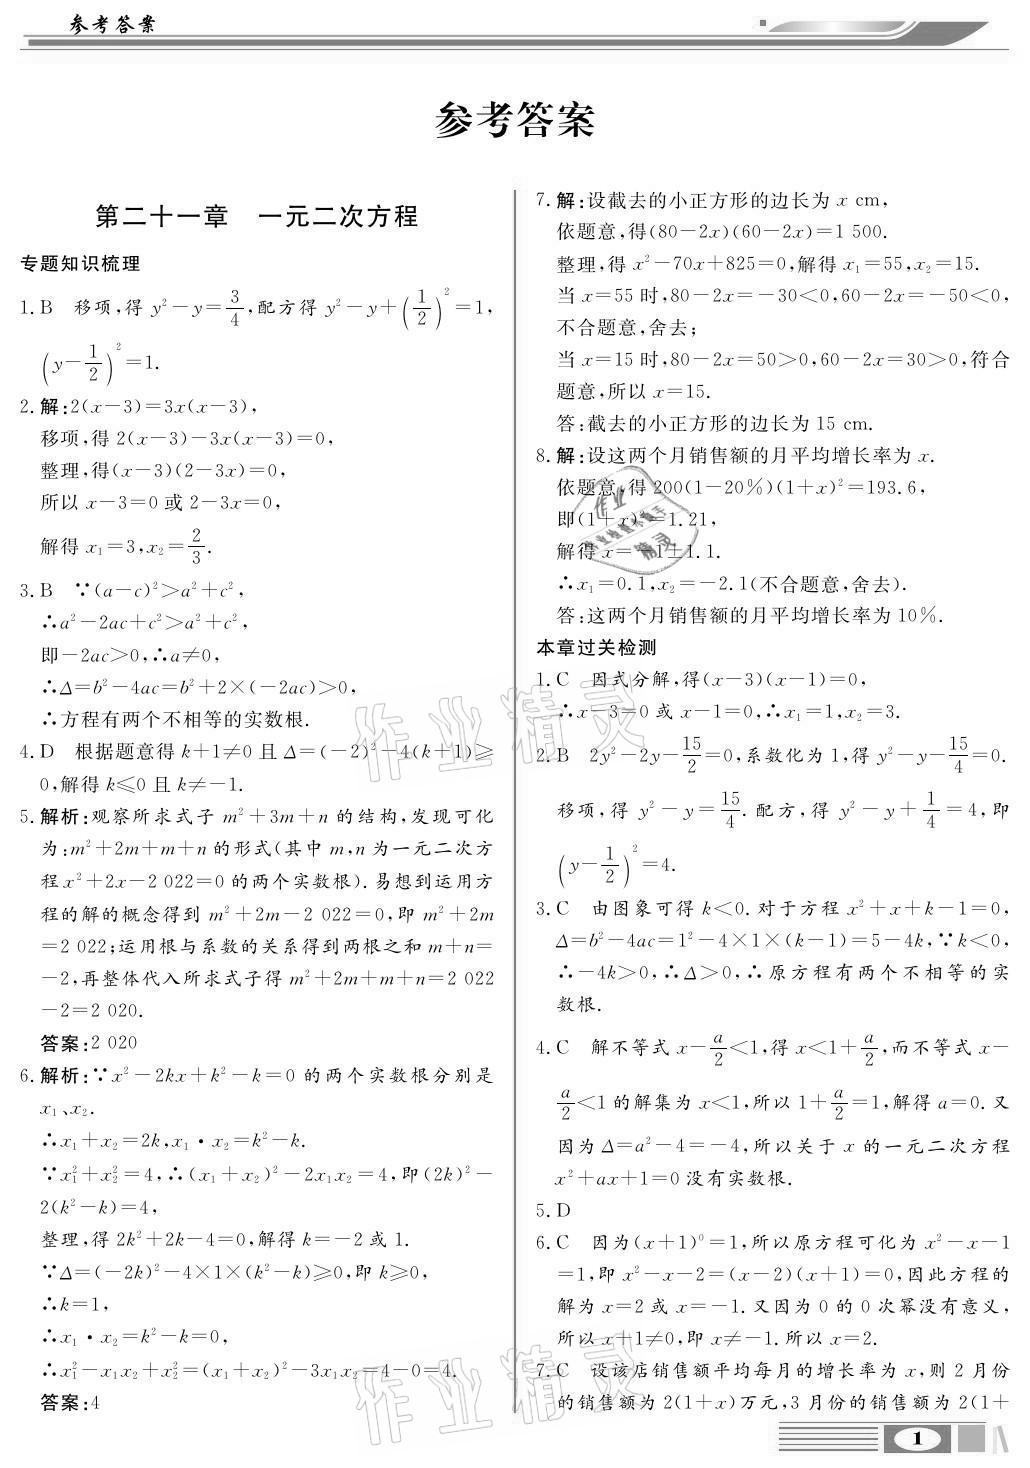 参考答案
参考答案
第二十一章　一元二次方程
专题知识梳理
1. B　移项,得 y²－y＝3/4,配方得 y²－y＋(1/2)²＝1,
(y－1/2)²＝1.
2. 解:2(x－3)＝3x(x－3),
移项,得 2(x－3)－3x(x－3)＝0,
整理,得(x－3)(2－3x)＝0,
所以 x－3＝0 或 2－3x＝0,
解得 x₁＝3,x₂＝2/3.
3. B　∵(a－c)²＞a²＋c²,
∴a²－2ac＋c²＞a²＋c²,
即－2ac＞0,∴a≠0,
∴Δ＝b²－4ac＝b²＋2×(－2ac)＞0,
∴方程有两个不相等的实数根.
4. D　根据题意得 k＋1≠0 且 Δ＝(－2)²－4(k＋1)≥
0,解得 k≤0 且 k≠－1.
5. 解析:观察所求式子 m²＋3m＋n 的结构,发现可化
为:m²＋2m＋m＋n 的形式(其中 m,n 为一元二次方
程 x²＋2x－2 022＝0 的两个实数根). 易想到运用方
程的解的概念得到 m²＋2m－2 022＝0,即 m²＋2m
＝2 022;运用根与系数的关系得到两根之和 m＋n＝
－2,再整体代入所求式子得 m²＋2m＋m＋n＝2 022
－2＝2 020.
答案:2 020
6. 解析:∵x²－2kx＋k²－k＝0 的两个实数根分别是
x₁、x₂.
∴x₁＋x₂＝2k,x₁·x₂＝k²－k.
∵x₁²＋x₂²＝4,∴(x₁＋x₂)²－2x₁x₂＝4,即(2k)²－
2(k²－k)＝4,
整理,得 2k²＋2k－4＝0,解得 k＝－2 或 1.
∵Δ＝(－2k)²－4×1×(k²－k)≥0,即 k≥0,
∴k＝1,
∴x₁·x₂＝k²－k＝0,
∴x₁²－x₁x₂＋x₂²＝(x₁＋x₂)²－3x₁x₂＝4－0＝4.
答案:4
7. 解:设截去的小正方形的边长为 x cm,
依题意,得(80－2x)(60－2x)＝1 500.
整理,得 x²－70x＋825＝0,解得 x₁＝55,x₂＝15.
当 x＝55 时,80－2x＝－30＜0,60－2x＝－50＜0,
不合题意,舍去;
当 x＝15 时,80－2x＝50＞0,60－2x＝30＞0,符合
题意,所以 x＝15.
答:截去的小正方形的边长为 15 cm.
8. 解:设这两个月销售额的月平均增长率为 x.
依题意,得 200(1－20%)(1＋x)²＝193.6,
即(1＋x)²＝1.21,
解得 x＝－1±1.1.
∴x₁＝0.1,x₂＝－2.1(不合题意,舍去).
答:这两个月销售额的月平均增长率为 10%.
本章过关检测
1. C　因式分解,得(x－3)(x－1)＝0,
∴x－3＝0 或 x－1＝0,∴x₁＝1,x₂＝3.
2. B　2y²－2y－15/2＝0,系数化为 1,得 y²－y－15/4＝0.
移项,得 y²－y＝15/4. 配方,得 y²－y＋1/4＝4,即
(y－1/2)²＝4.
3. C　由图象可得 k＜0. 对于方程 x²＋x＋k－1＝0,
Δ＝b²－4ac＝1²－4×1×(k－1)＝5－4k,∵k＜0,
∴－4k＞0,∴Δ＞0,∴原方程有两个不相等的实
数根.
4. C　解不等式 x－a/2＜1,得 x＜1＋a/2,而不等式 x－
a/2＜1 的解集为 x＜1,所以 1＋a/2＝1,解得 a＝0. 又
因为 Δ＝a²－4＝－4,所以关于 x 的一元二次方程
x²＋ax＋1＝0 没有实数根.
5. D
6. C　因为(x＋1)⁰＝1,所以原方程可化为 x²－x－1
＝1,即 x²－x－2＝(x－2)(x＋1)＝0,因此方程的
解为 x＝2 或 x＝－1. 又因为 0 的 0 次幂没有意义,
所以 x＋1≠0,即 x≠－1. 所以 x＝2.
7. C　设该店销售额平均每月的增长率为 x,则 2 月份
的销售额为 2(1＋x)万元,3 月份的销售额为 2(1＋
1
作业精灵
作业精灵